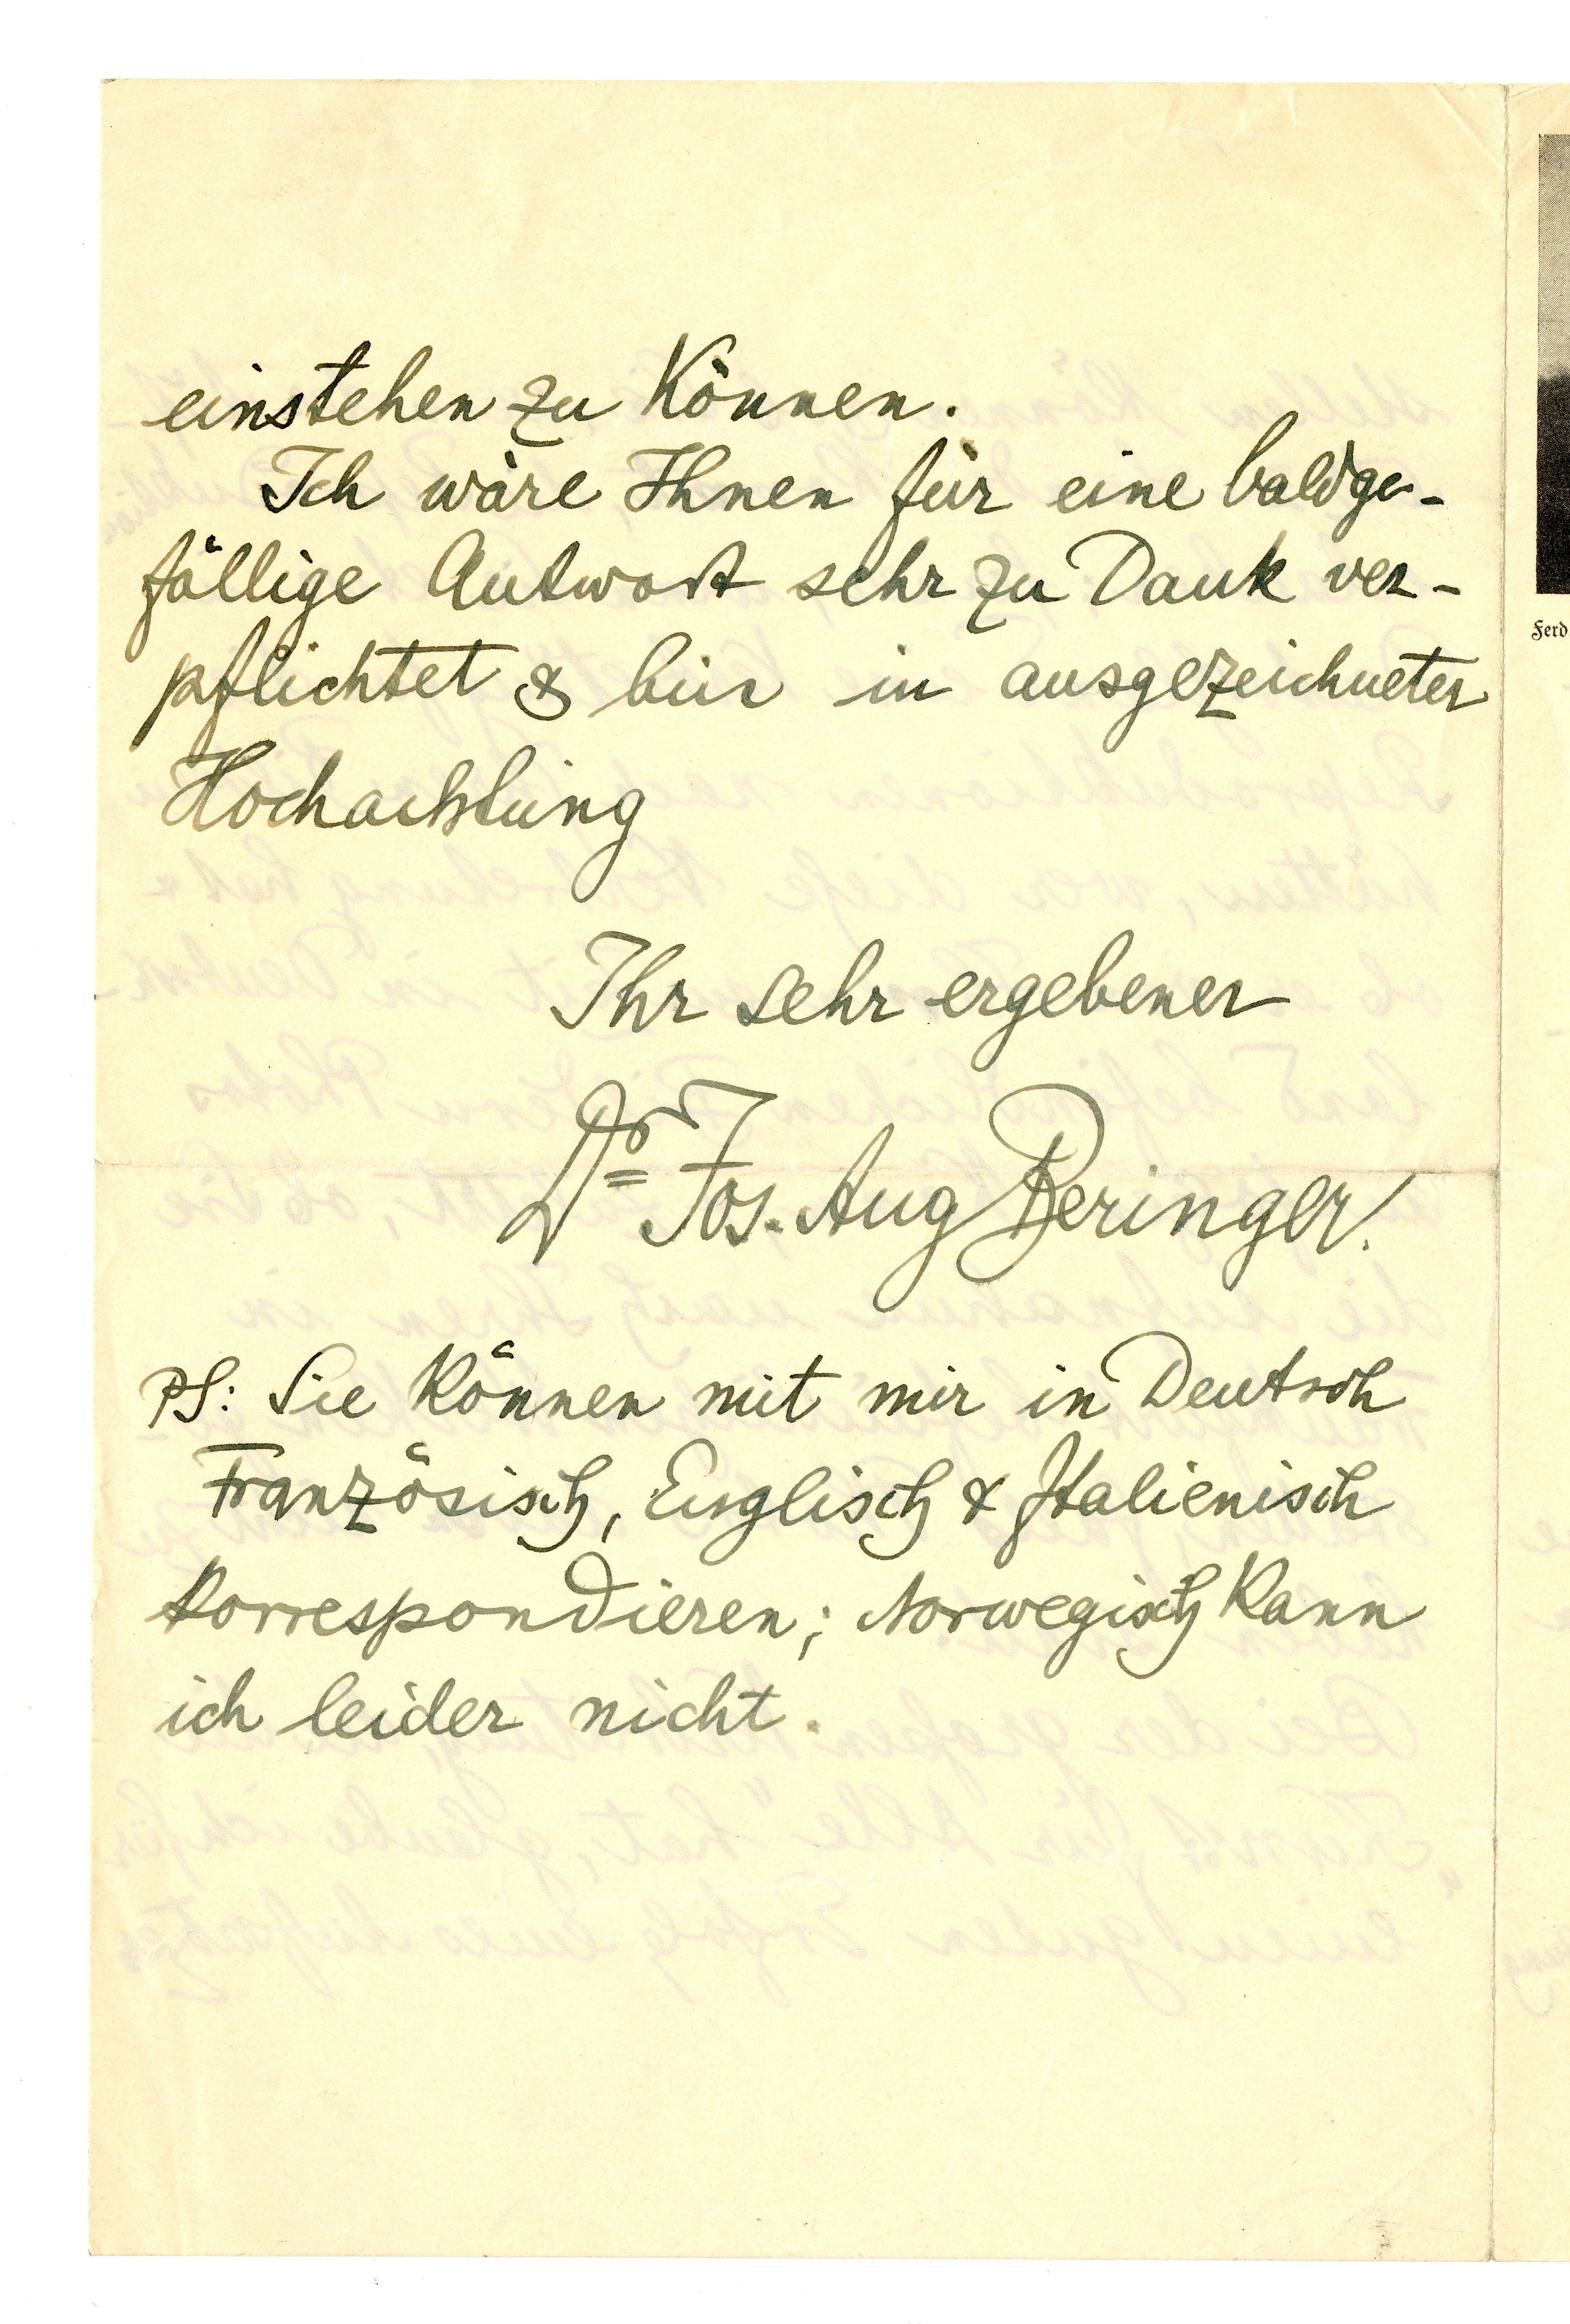 einstehen zu können.
Ich wäre Ihnen für eine baldge-
fällige Antwort sehr zu Dank ver-
pflichtet & bin in ausgezeichneter
Hochachtung
Ihr sehr ergebener
Dr Jos. Aug Beringer.
PS: Sie können mit mir in Deutsch
Französisch, Englisch & Italienisch
korrespondieren; Norwegisch kann
ich leider nicht.
Ferd